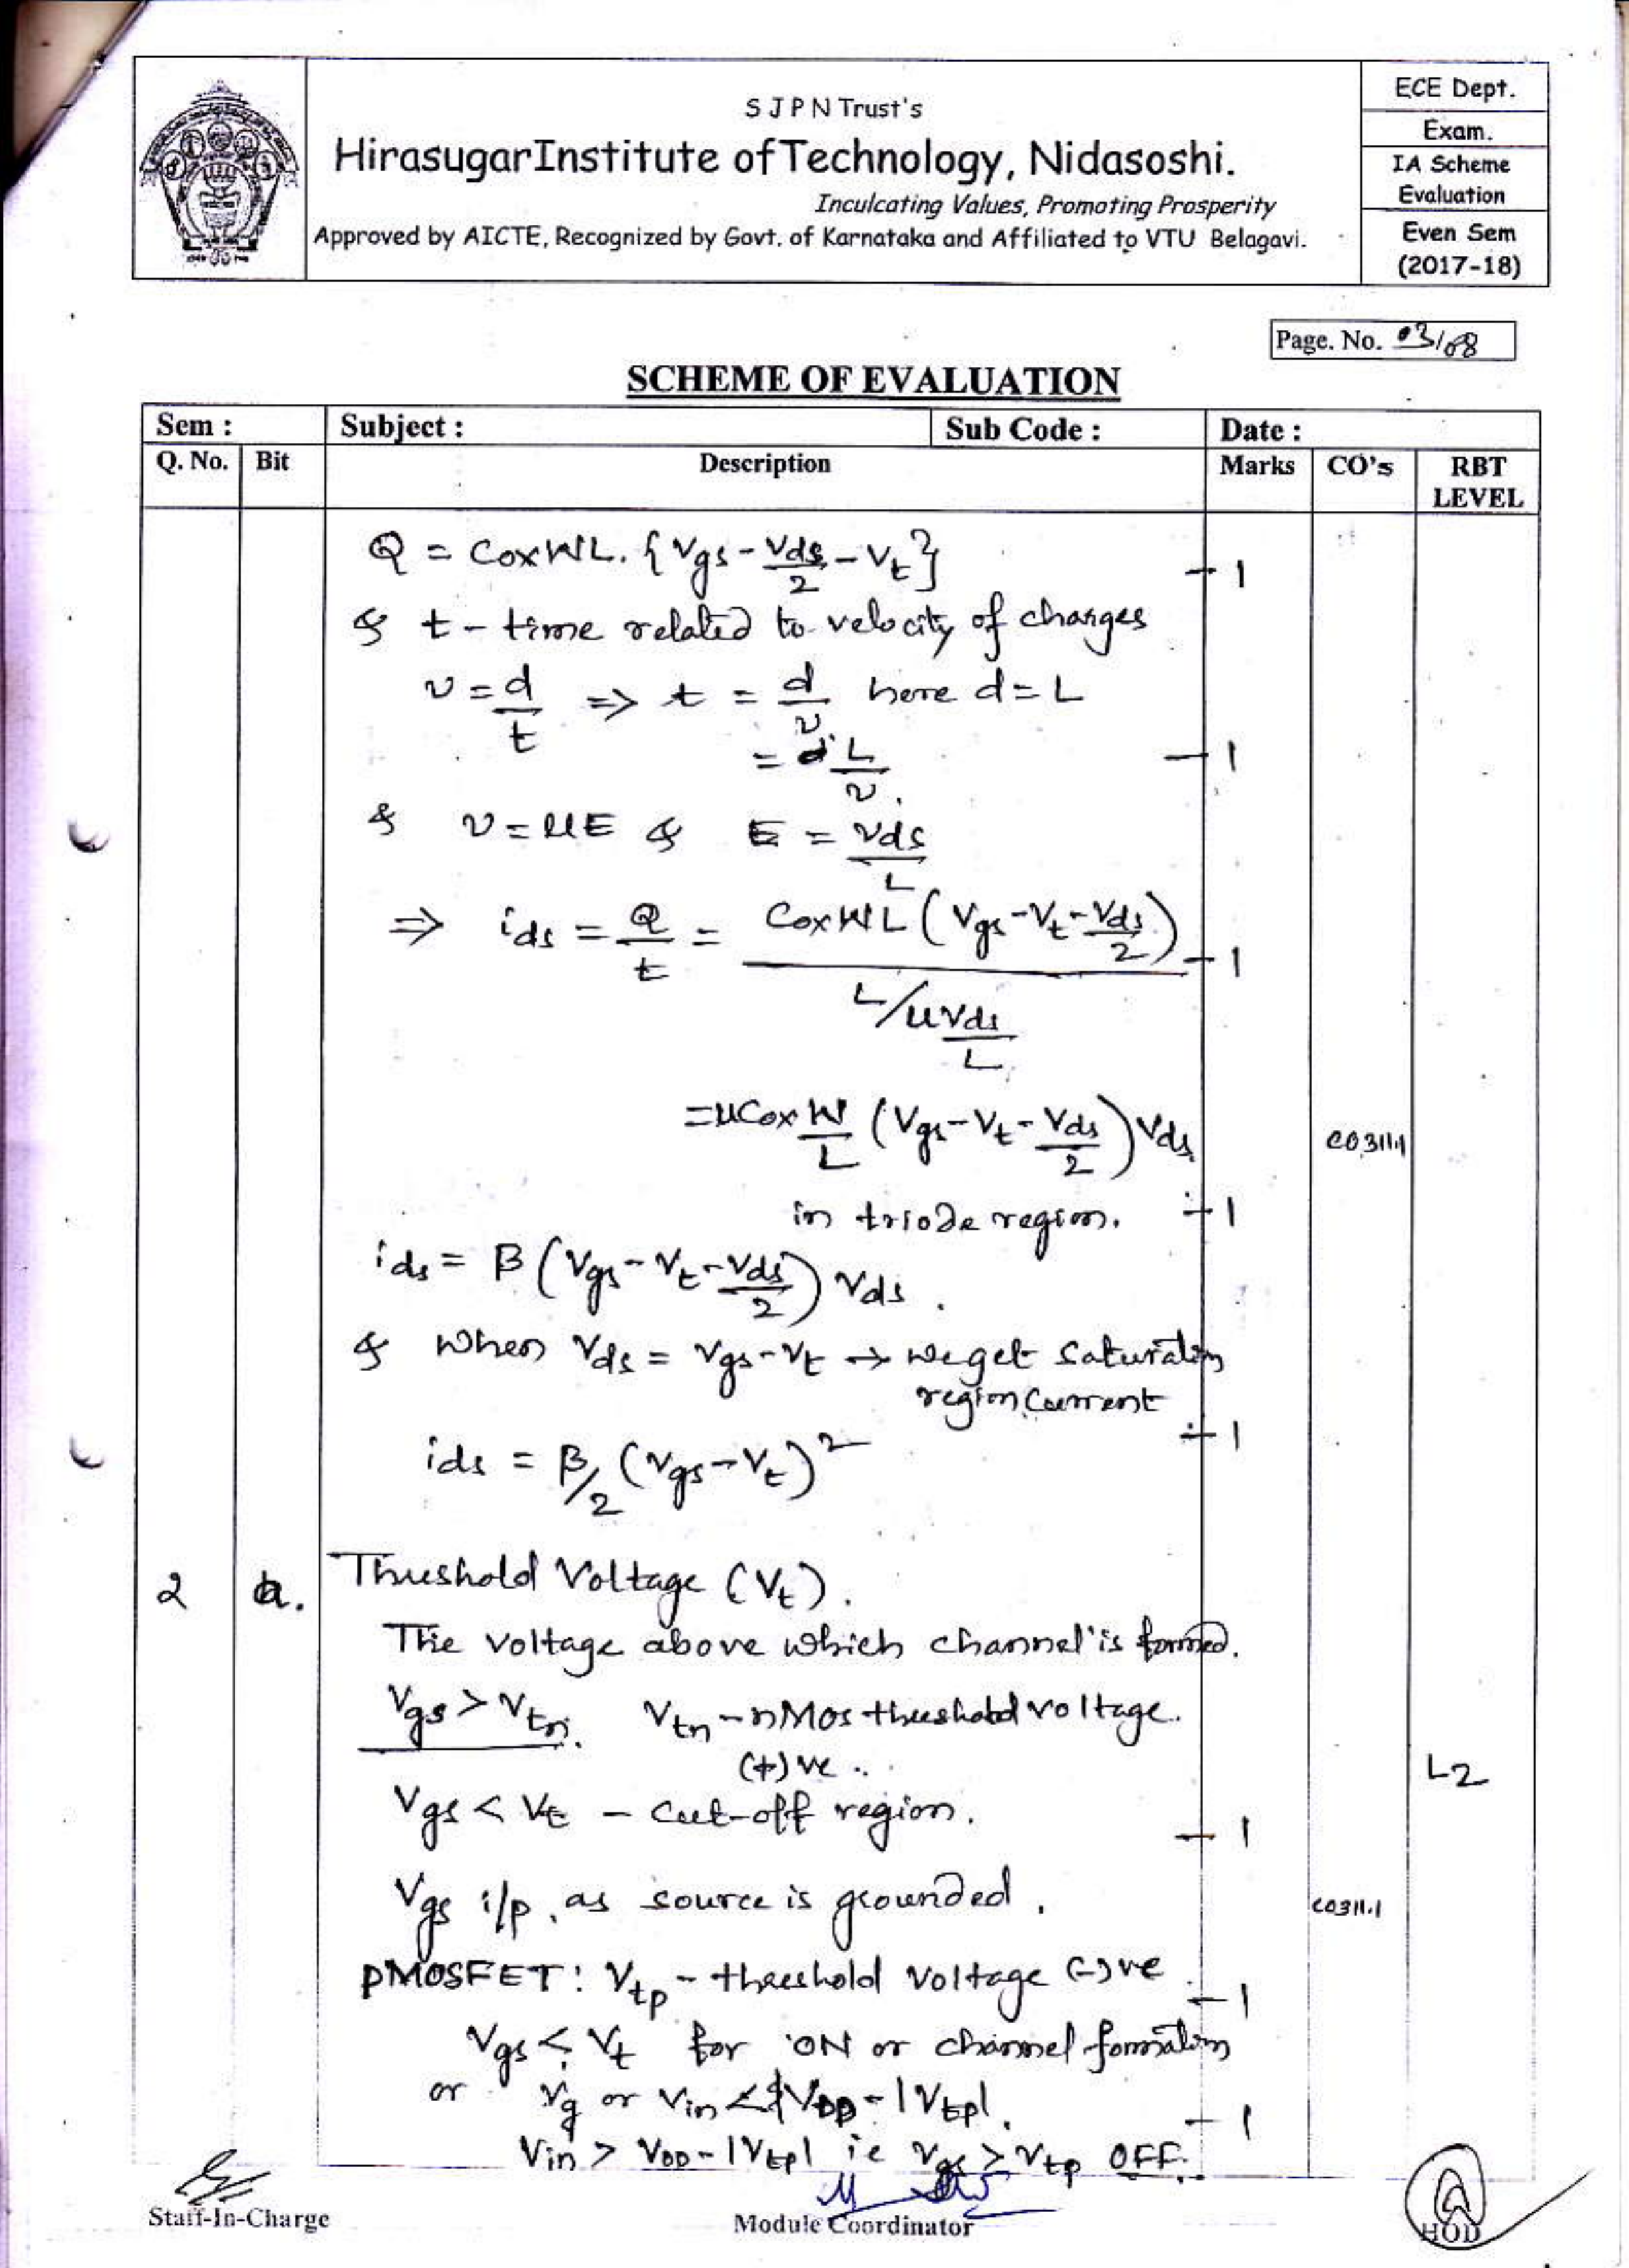 S J P N Trust's
HirasugarInstitute of Technology, Nidasoshi.
Inculcating Values, Promoting Prosperity
Approved by AICTE, Recognized by Govt. of Karnataka and Affiliated to VTU Belagavi.
ECE Dept.
Exam.
IA Scheme
Evaluation
Even Sem
(2017-18)
Page. No. 03/08
SCHEME OF EVALUATION
Sem : Subject : Sub Code : Date :
Q. No. Bit Description Marks CO's RBT
LEVEL
Q = CoxWL. {Vgs - Vds/2 - Vt} - 1
& t - time related to velocity of charges
v = d/t => t = d/v here d = L
= L/v. - 1
& v = μE & E = Vds/L
=> ids = Q/t = CoxWL (Vgs - Vt - Vds/2) / (L/μVds/L) - 1
= μCox W/L (Vgs - Vt - Vds/2) Vds CO311.1
in triode region. - 1
ids = β (Vgs - Vt - Vds/2) Vds.
& When Vds = Vgs - Vt → we get saturation
region current - 1
ids = β/2 (Vgs - Vt)²
2 a. Threshold Voltage (Vt).
The voltage above which channel is formed.
Vgs > Vtn. Vtn - nMos threshold voltage.
(+)ve .. L2
Vgs < Vt - Cut-off region. - 1
Vgs i/p, as source is grounded. CO311.1
PMOSFET: Vtp - threshold voltage (-)ve - 1
Vgs < Vt for ON or channel formation
or Vg or Vin < VDD - |Vtp|. - 1
Vin > VDD - |Vtp| ie Vgs > Vtp OFF.
Staff-In-Charge Module Coordinator HOD